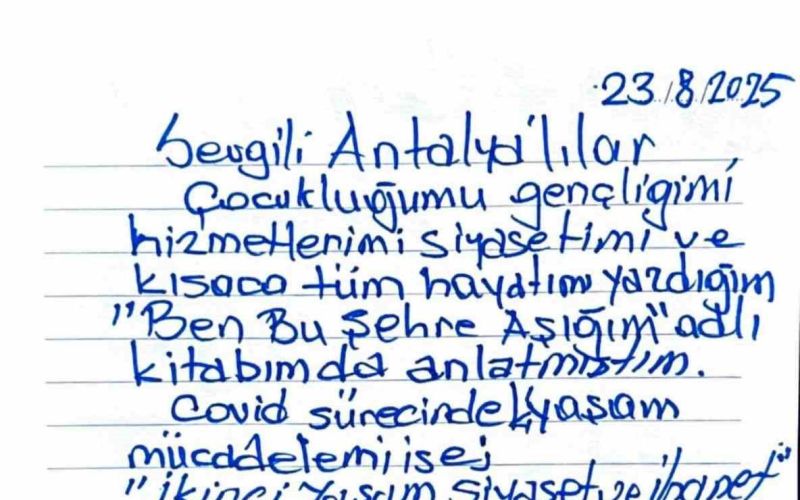 23/8/2025
Sevgili Antalya'lılar
Çocukluğumu gençliğimi
hizmetlerimi siyasetimi ve
kısaca tüm hayatım yazdığım
"Ben Bu Şehre Aşığım" adlı
kitabımda anlatmıştım.
Covid sürecindeki yaşam
mücadelemi ise;
"İkinci Yaşam Siyaset ve İhanet"